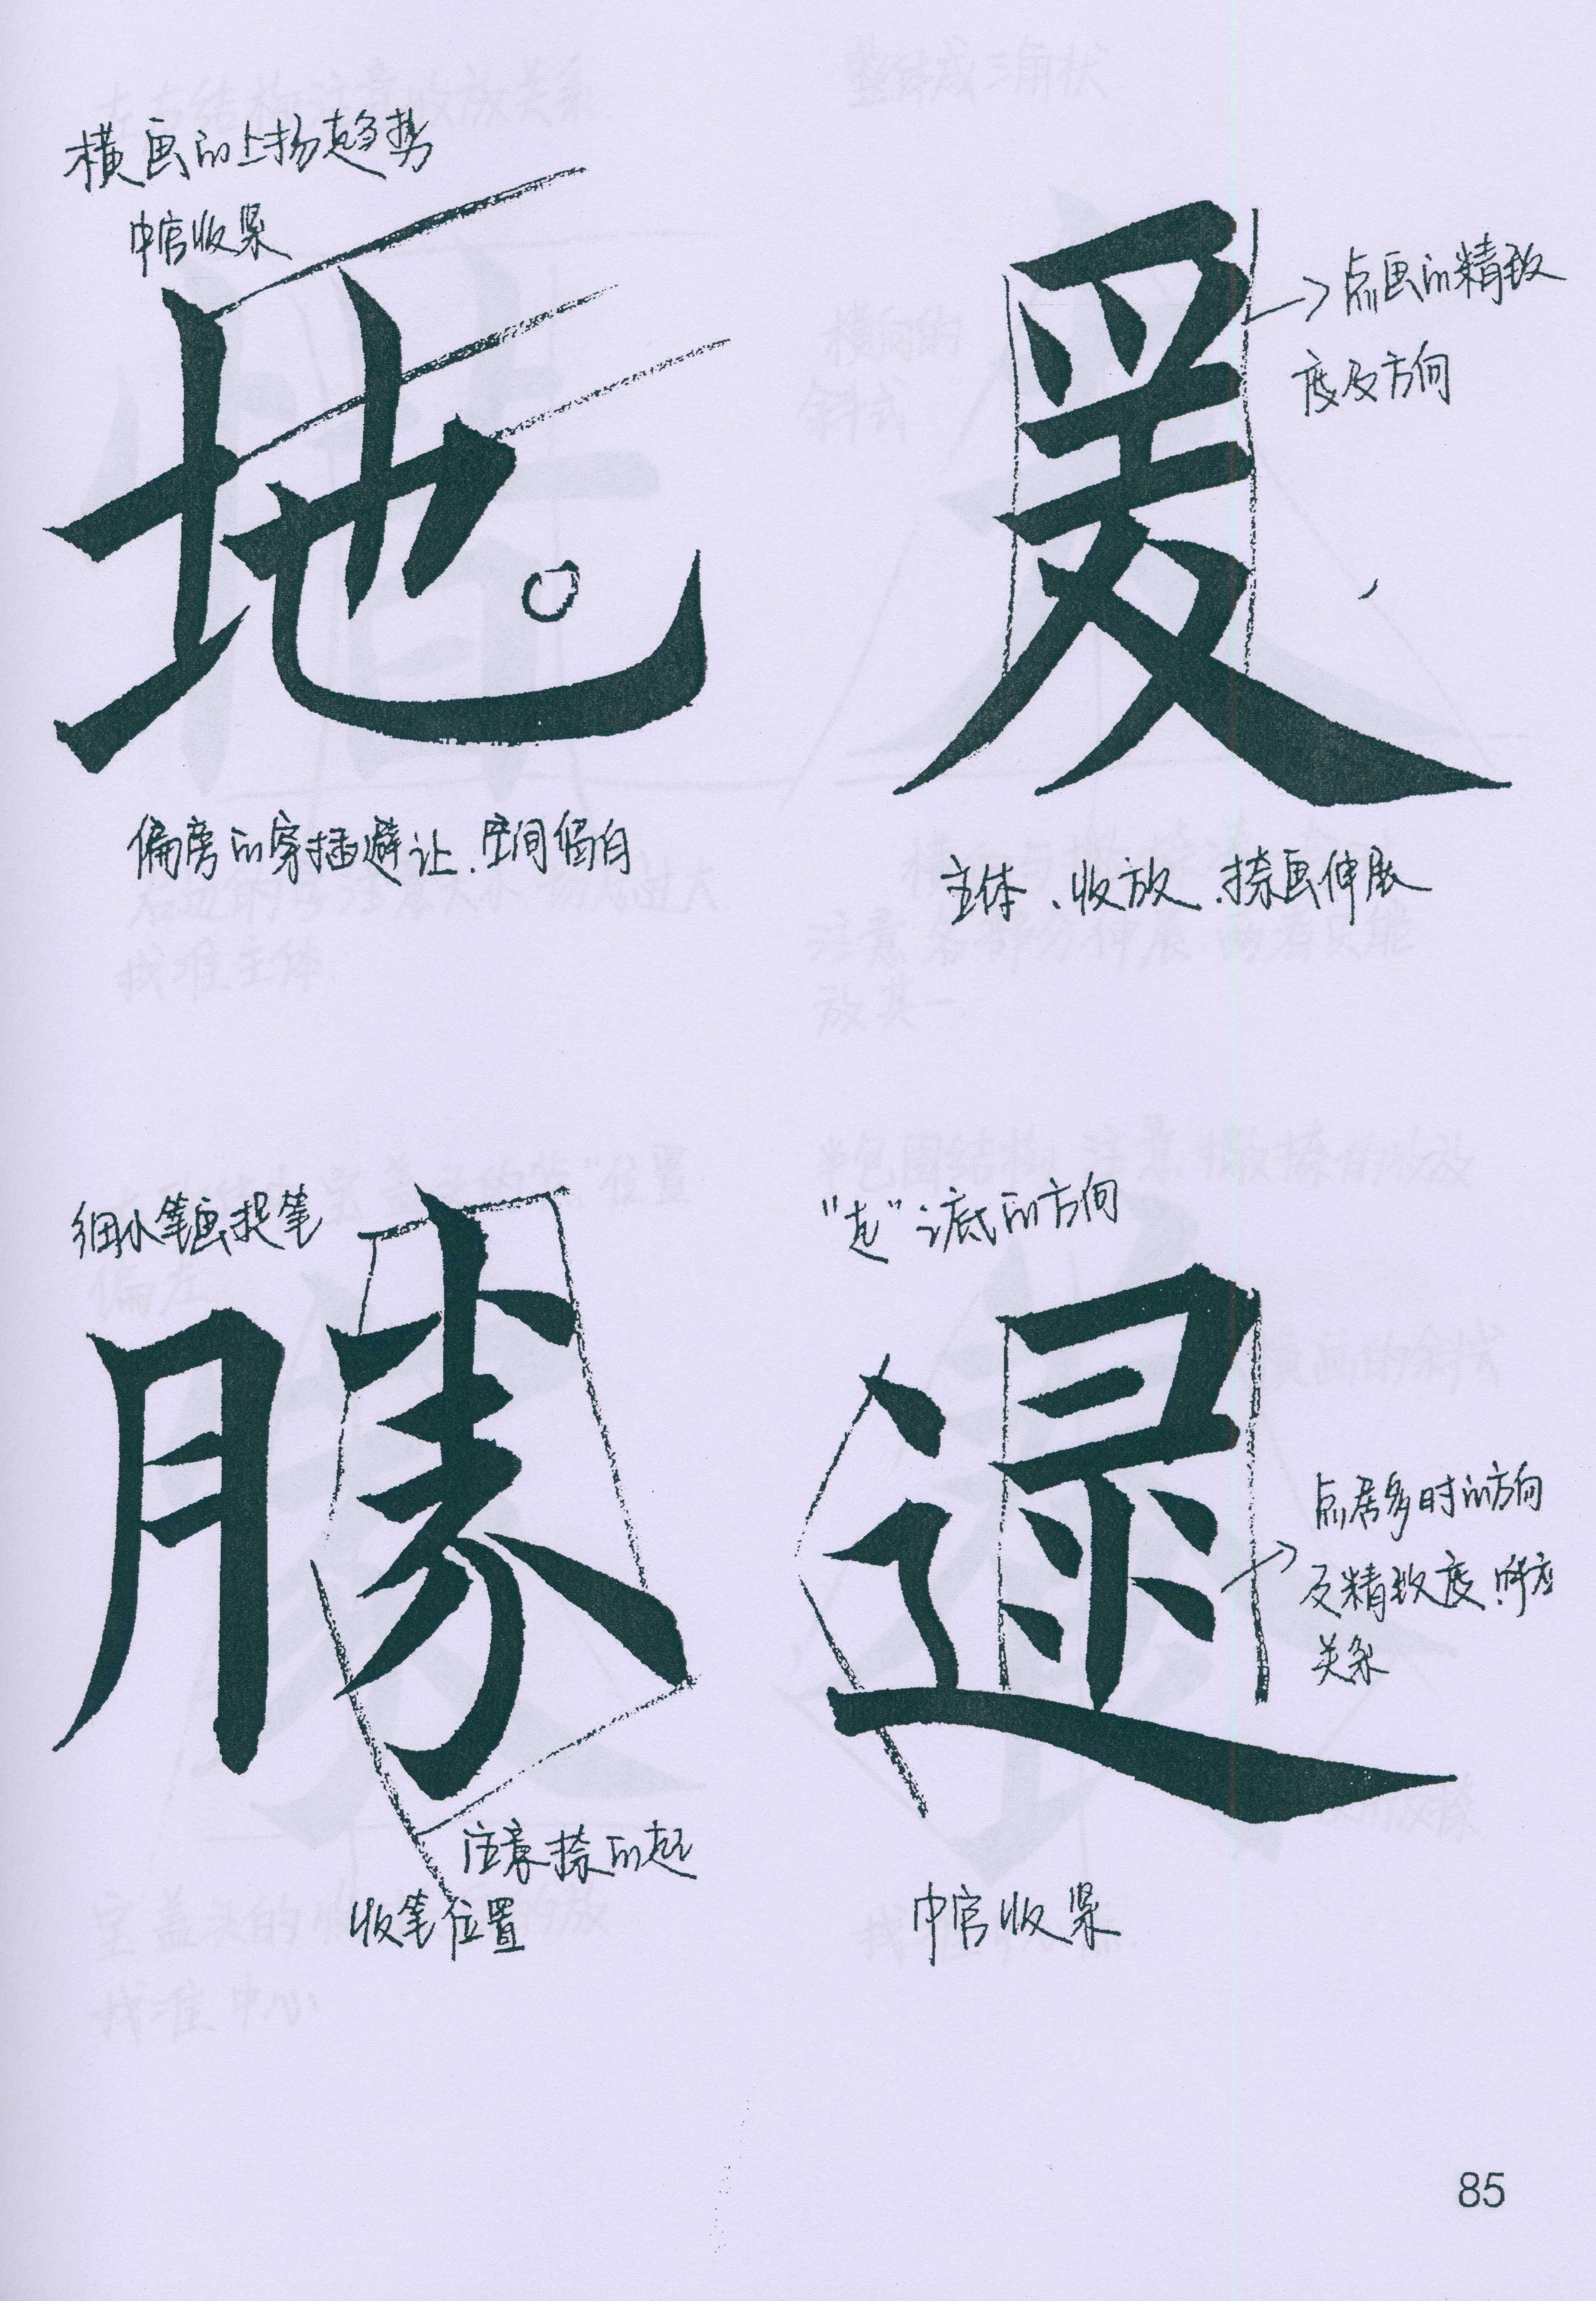 横画的上扬趋势
中宫收紧
地
偏旁的穿插避让.空间留白
爰
→点画的精致
度及方向
主体、收放.捺画伸展
细小笔画提笔
勝
注意捺的起
收笔位置
"走"之底的方向
逯
点居多时的方向
及精致度.呼应
关系
中宫收紧
85